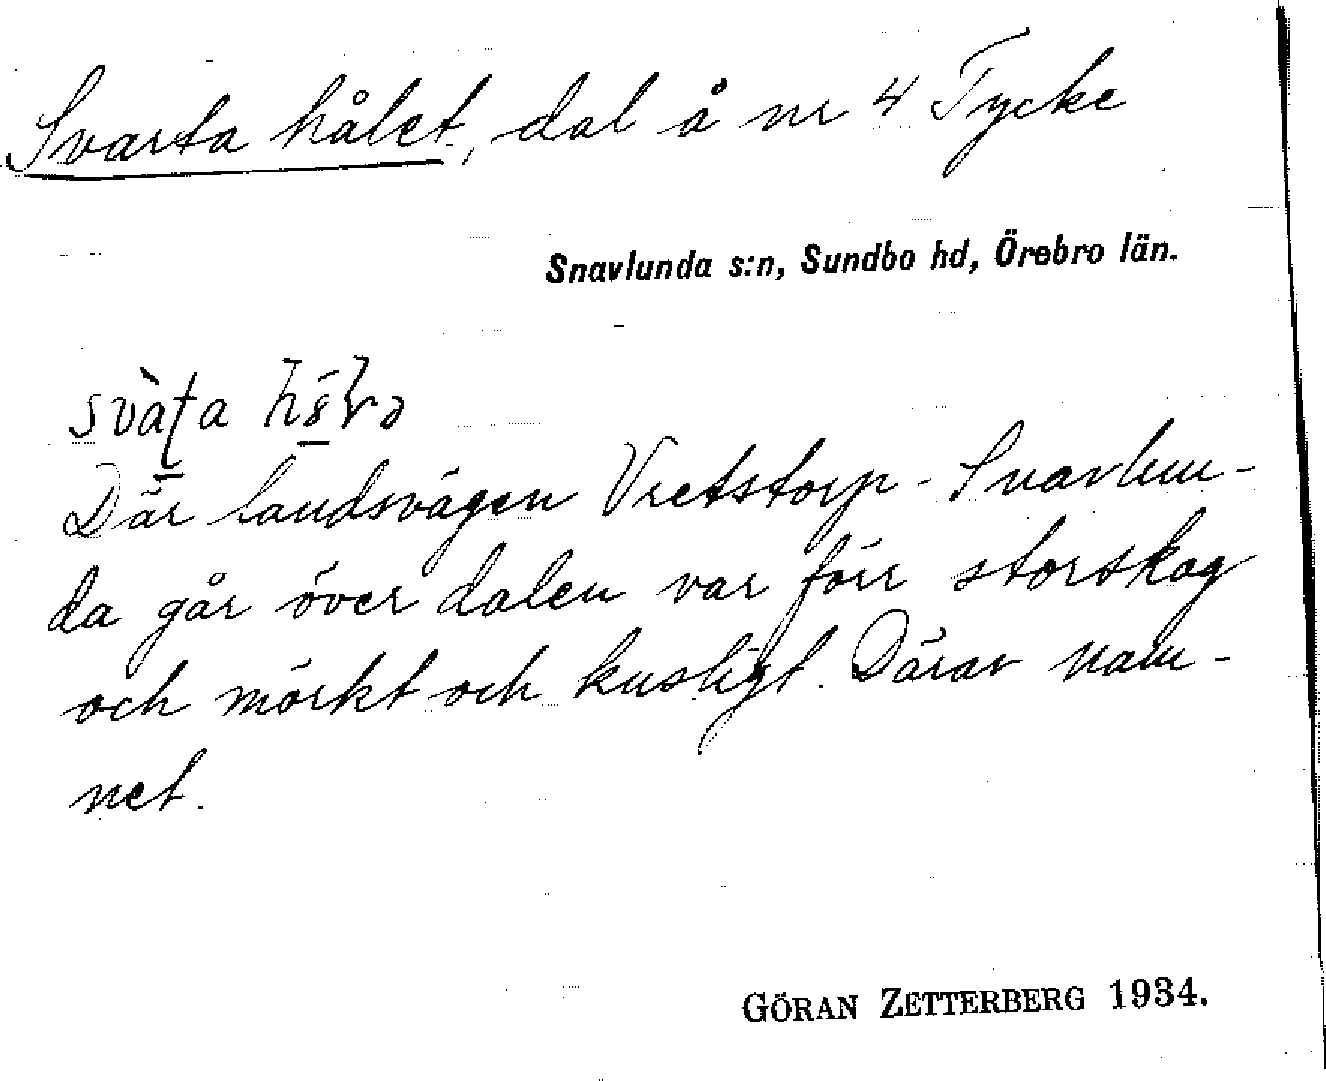 Svarta hålet, dal å nr 4 Tycke
Snavlunda s:n, Sundbo hd, Örebro län.
Där landsvägen Vretstorp-Snavlun-
da går över dalen var förr storskog
och mörkt och kusligt. Därav nam-
net.
GÖRAN ZETTERBERG 1934.